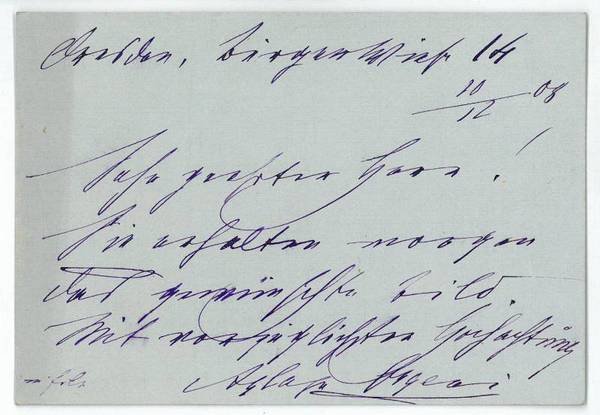 Dresden, Bürgerwiese 14
10/12 08
Sehr geehrter Herr!
Sie erhalten morgen
das gewünschte Bild.
Mit vorzüglichster Hochachtung
Aglaja Orgeni